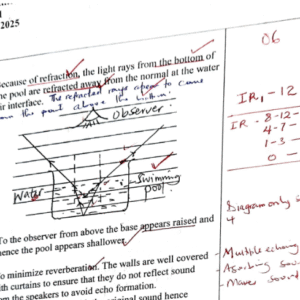 2025
06
ecause of refraction, the light rays from the bottom of
he pool are refracted away from the normal at the water
ir interface. The refracted rays appear to come
from the pool above the bottom.
Observer
IR, - 12
IR - 8-12-
4-7-
1-3-
0 -
Water
Swimming
pool
Diagram only s
4
To the observer from above the base appears raised and
hence the pool appears shallower.
To minimize reverberation. The walls are well covered
ith curtains to ensure that they do not reflect sound
om the speakers to avoid echo formation.
original sound hence
- Multiple echoing
- sou
- sound